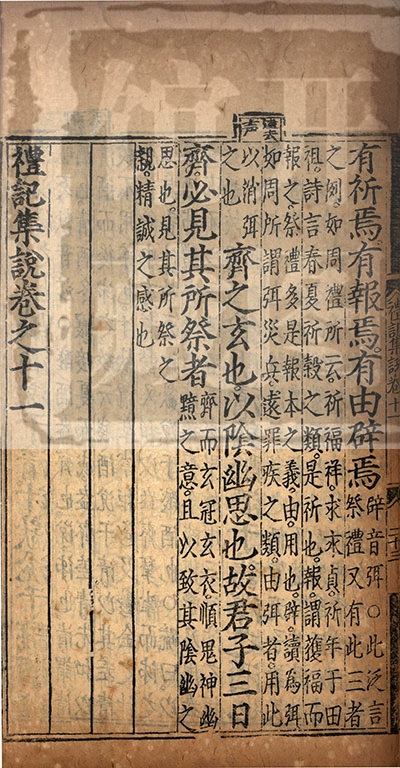 有祈焉有報焉有由辟焉
辟音弭○此泛言
祭禮又有此三者
之例如周禮所云祈福祥求永貞祈年于田
祖詩言春夏祈穀之類是祈也報謂獲福而
報之祭禮多是報本之義由用也辟讀為弭
如周所謂弭災兵遠罪疾之類由弭者用此
遠去
声
以消弭
之也
齊之玄也以陰幽思也故君子三日
齊必見其所祭者
齊而玄冠玄衣順鬼神幽
黯之意且以致其陰幽之
思也見其所祭之
親精誠之感也
禮記集說卷之十一